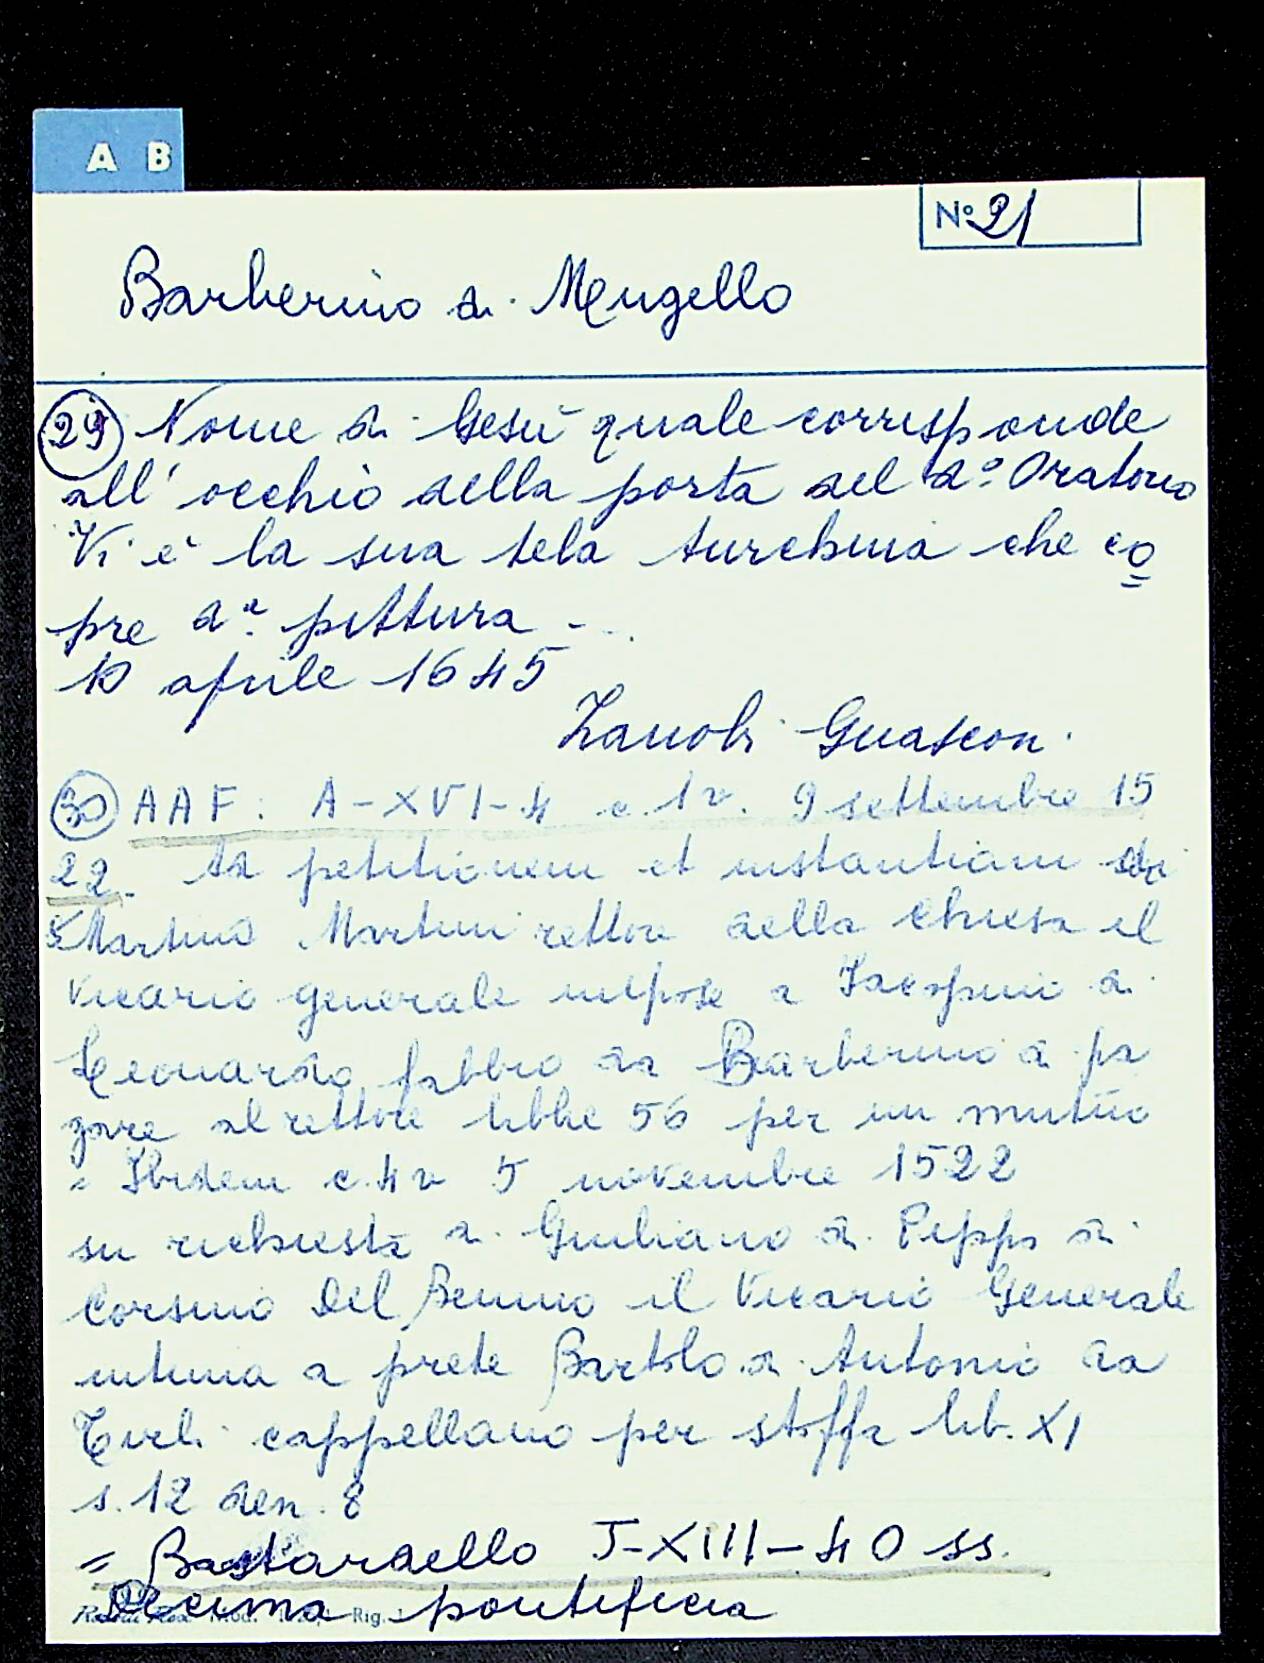 A B
N° 21
Barberino di Mugello
29 Nome di Gesù quale corrisponde
all'occhio della porta del d.° Oratorio
Vi è la sua tela turchina che co
pre d.a pittura -..
10 aprile 1645
Zanobi Guasconi
30 AAF: A-XVI-4 c. 1v. 9 settembre 15
22. Ad petitionem et instantiam di
Martino Martini rettore della chiesa il
Vicario generale impose a Iacopino di
Leonardo fabbro da Barberino di pa
gare al rettore libbe 56 per un mutuo
= Ibidem c. 4v 5 novembre 1522
su richiesta di Giuliano di Pippo di
Corsino Del Benino il Vicario Generale
intima a prete Bartolo di Antonio da
Tirli cappellano per stoffa lib. XI
s. 12 den. 8
= Bastardello J-XIII-40 ss.
Decima pontificia
Rig.